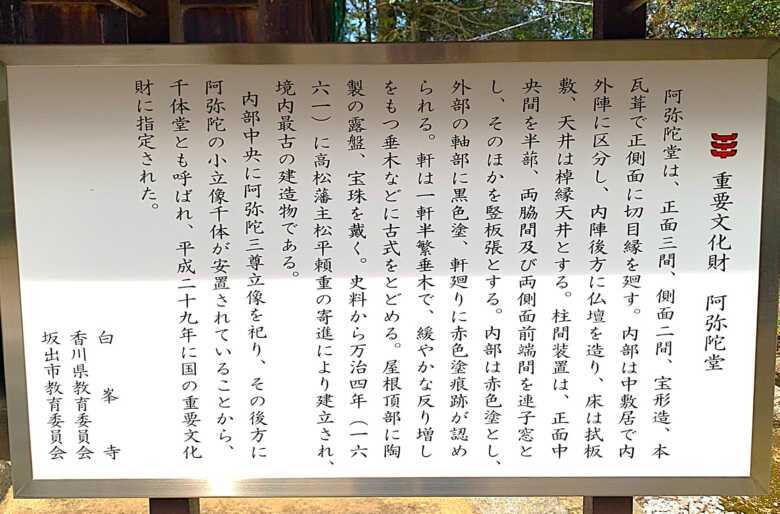 重要文化財 阿弥陀堂
阿弥陀堂は、正面三間、側面二間、宝形造、本
瓦葺で正側面に切目縁を廻す。内部は中敷居で内
外陣に区分し、内陣後方に仏壇を造り、床は拭板
敷、天井は棹縁天井とする。柱間装置は、正面中
央間を半蔀、両脇間及び両側面前端間を連子窓と
し、そのほかを竪板張とする。内部は赤色塗とし、
外部の軸部に黒色塗、軒廻りに赤色塗痕跡が認め
られる。軒は一軒半繁垂木で、緩やかな反り増し
をもつ垂木などに古式をとどめる。屋根頂部に陶
製の露盤、宝珠を戴く。史料から万治四年（一六
六一）に高松藩主松平頼重の寄進により建立され、
境内最古の建造物である。
内部中央に阿弥陀三尊立像を祀り、その後方に
阿弥陀の小立像千体が安置されていることから、
千体堂とも呼ばれ、平成二十九年に国の重要文化
財に指定された。
白峯寺
香川県教育委員会
坂出市教育委員会